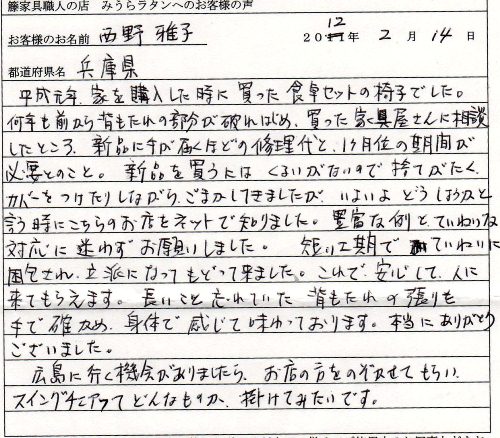 籐家具職人の店 みうらラタンへのお客様の声
お客様のお名前 西野 雅子 2012年 2月 14日
都道府県名 兵庫県
平成元年、家を購入した時に買った食卓セットの椅子でした。
何年も前から背もたれの部分が破れはじめ、買った家具屋さんに相談
したところ、新品に手が届くほどの修理代と、1ヶ月位の期間が
必要とのこと。新品を買うには くるいがないので捨てがたく、
カバーをつけたりしながら、ごまかしてきましたが、いよいよどうしようかと
言う時にこちらのお店をネットで知りました。豊富な例と、ていねいな
対応に迷わずお願いしました。 短い工期で ていねいに
梱包され、立派になってもどって来ました。これで、安心して、人に
来てもらえます。長いこと忘れていた 背もたれの張りを
手で確かめ、身体で感じて味わっております。本当にありがとう
ございました。
広島に行く機会がありましたら、お店の方をのぞかせてもらい、
スイングチェアってどんなものか、掛けてみたいです。